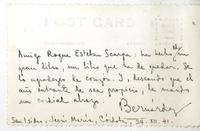 POST CARD
Amigo Roque Esteban Scarpa: ha hecho Ud.
un gran libro, un libro que ha de quedar. Se
lo agradezco de corazón. Y, deseando que el
año entrante de ser propicio, le mando
un cordial abrazo.
Bernárdez
San Isidro, Jesús María, Córdoba, 29.XII.41.